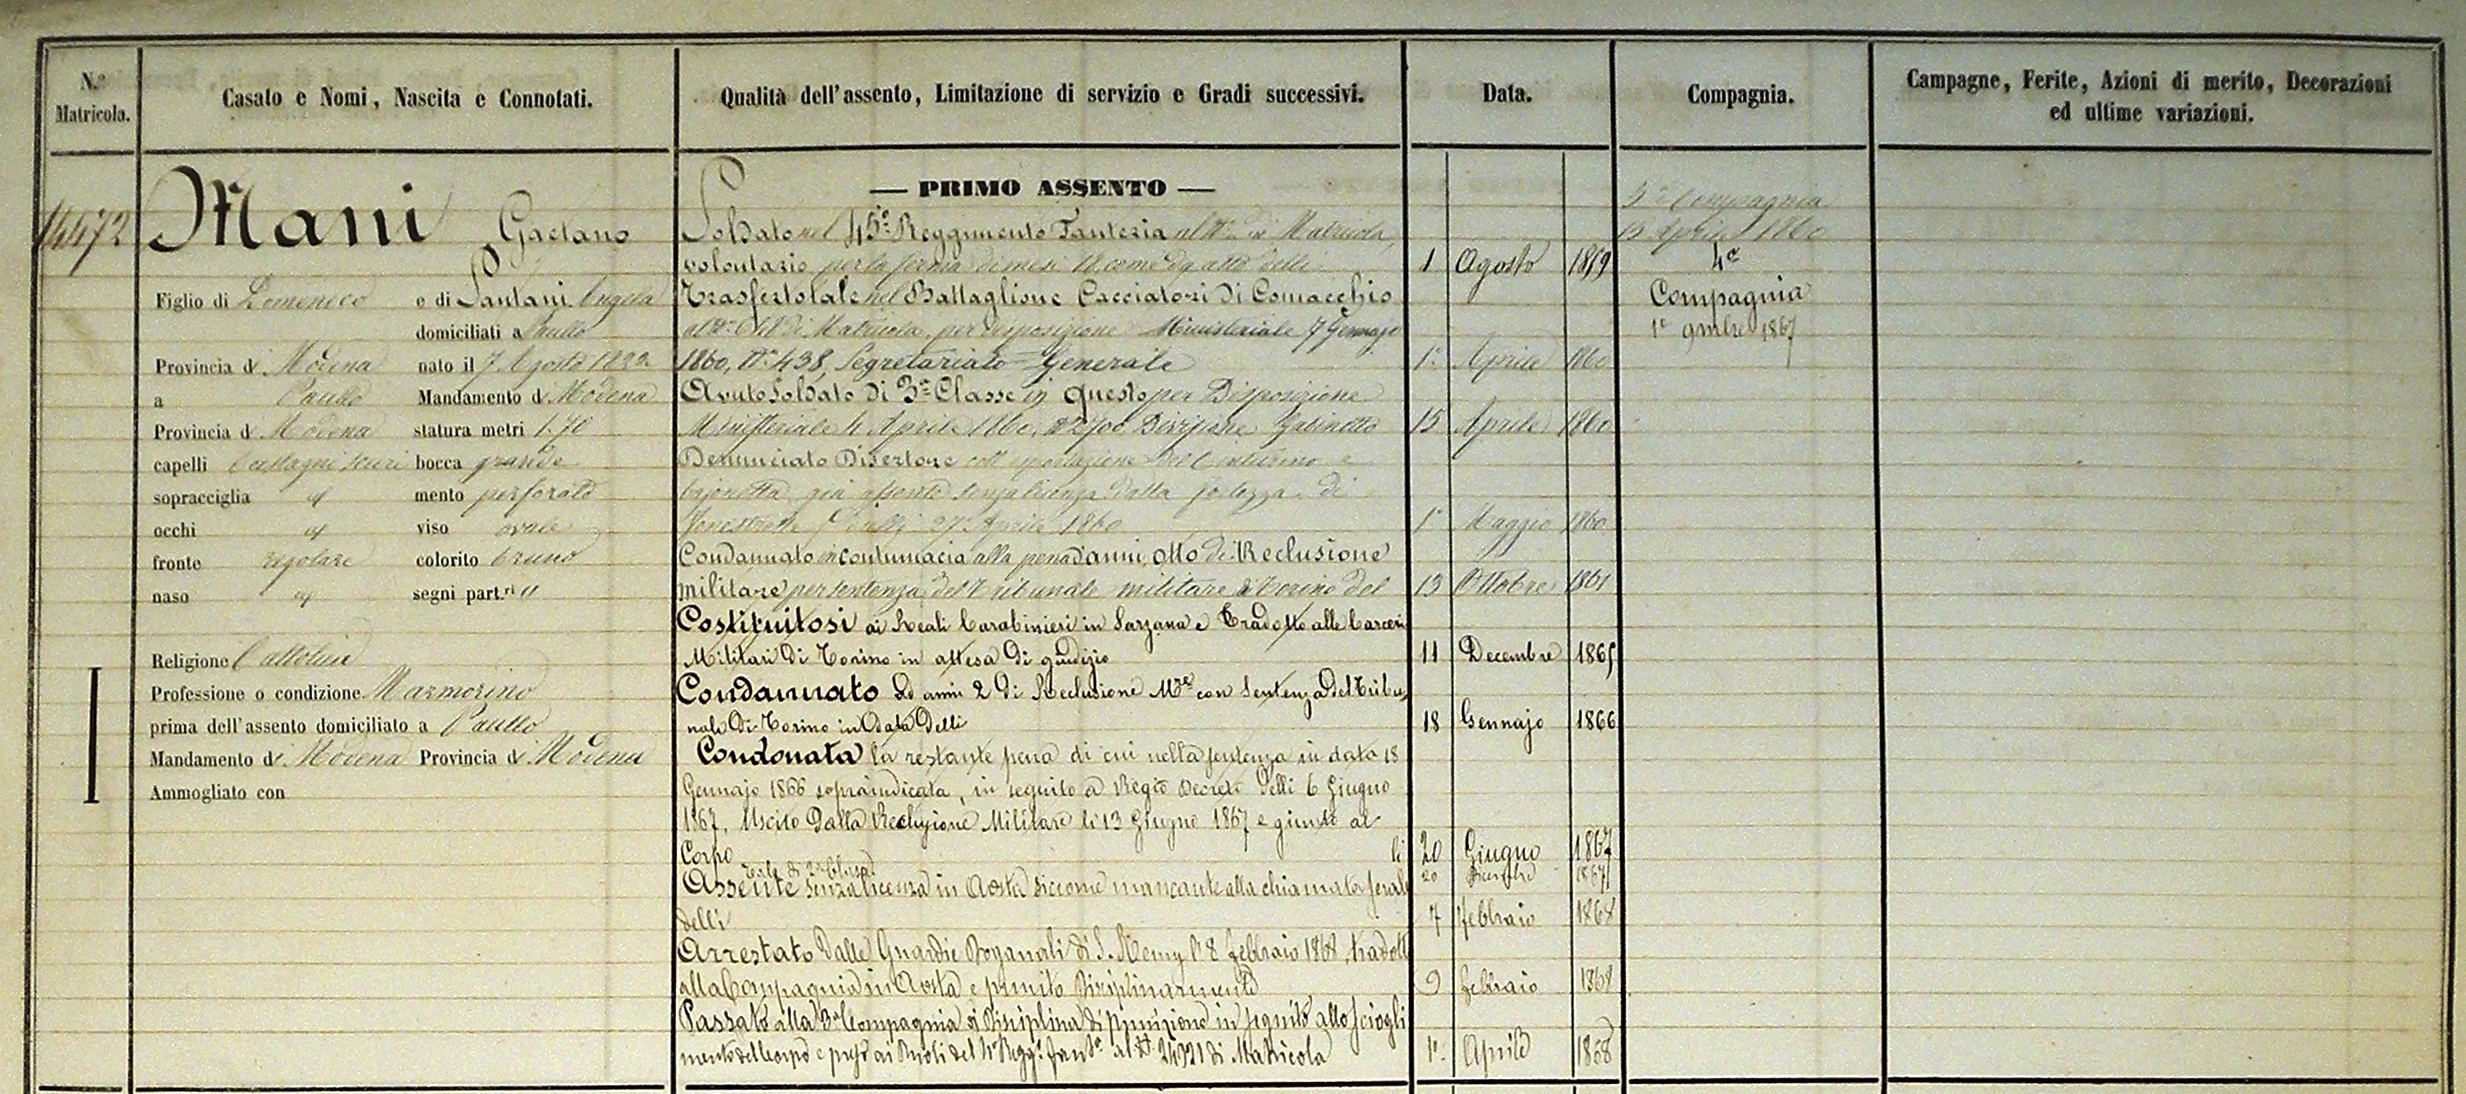 N.º Matricola.
Casato e Nomi, Nascita e Connotati.
Qualità dell'assento, Limitazione di servizio e Gradi successivi.
Data.
Compagnia.
Campagne, Ferite, Azioni di merito, Decorazioni
ed ultime variazioni.
14472
Mani Gaetano
Figlio di Domenico e di Santani Angela
domiciliati a Paullo
Provincia di Modena nato il 7 Agosto 1832
a Paullo Mandamento di Modena
Provincia di Modena statura metri 1.70
capelli Castagni scuri bocca grande
sopracciglia id mento perforato
occhi id viso ovale
fronte regolare colorito bruno
naso id segni part.ri //
Religione Cattolica
Professione o condizione Marmorino
prima dell'assento domiciliato a Paullo
Mandamento di Modena Provincia di Modena
Ammogliato con
— PRIMO ASSENTO —
Soldato nel 45º Reggimento Fanteria al Nº di Matricola,
volontario per la ferma di mesi 18 come da atto delli 1 Agosto 1859
Trasferto tale nel Battaglione Cacciatori di Comacchio
al Nº di Matricola, per disposizione Ministeriale 7 Gennajo
1860, Nº 438, Segretariato Generale 1º Aprile 1860
Avuto Soldato di 3ª Classe in questo per Disposizione
Ministeriale 4 Aprile 1860, Nº 2700, Divisione Gabinetto 15 Aprile 1860
Denunciato Disertore coll'esportazione del Centurino e
bajonetta, già assente senza licenza dalla fortezza di
Fenestrelle dalli 27 Aprile 1860 1º Maggio 1860
Condannato in contumacia alla pena d'anni otto di Reclusione
militare per sentenza del Tribunale militare di Torino del 13 Ottobre 1861
Costituitosi ai Reali Carabinieri in Sarzana e Tradotto alle Carceri
Militari di Torino in attesa di giudizio 11 Decembre 1865
Condannato ad anni 2 di Reclusione Mre con sentenza del Tribu-
nale di Torino in data delli 18 Gennajo 1866
Condonata la restante pena di cui nella sentenza in data 18
Gennajo 1866 sopraindicata, in seguito a Regio Decreto delli 6 Giugno
1867, Uscito dalla Reclusione Militare li 13 Giugno 1867 e giunto al
Corpo li 20 Giugno 1867
Tale di 2ª Classe 20 1867
Assente senza licenza in Aosta siccome mancante alla chiamata serale
delli 7 febbraio 1868
Arrestato dalle Guardie Doganali di S. Remy l'8 febbraio 1868, tradotto
alla Compagnia in Aosta e punito disciplinarmente 9 febbraio 1868
Passato alla 3ª Compagnia di Disciplina di punizione in seguito allo sciogli
mento del Corpo e preso ai Ruoli del Regg.º fant.ª al Nº 24321 di Matricola 1º Aprile 1868
5ª Compagnia
15 Aprile 1860
4ª
Compagnia
1º 9mbre 1867